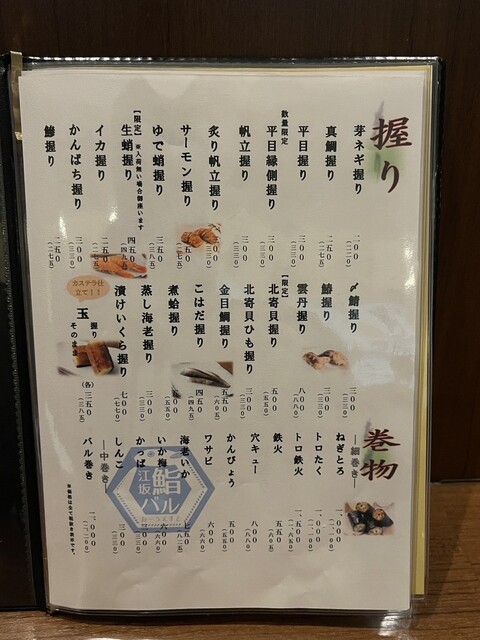 握り
芽ネギ握り 二〇〇 (二二〇)
真鯛握り 二五〇 (二七五)
平目握り 三〇〇 (三三〇)
数量限定
平目縁側握り 三〇〇 (三三〇)
帆立握り 三〇〇 (三三〇)
炙り帆立握り 三〇〇 (三三〇)
サーモン握り 二五〇 (二七五)
ゆで蛸握り 三五〇 (三八五)
【限定】※入荷無い場合御座います
生蛸握り 四五〇 (四九五)
イカ握り 二五〇 (二七五)
かんぱち握り 三〇〇 (三三〇)
鯵握り 二五〇 (二七五)
〆鯖握り 三〇〇 (三三〇)
鰆握り 三〇〇 (三三〇)
雲丹握り 八〇〇 (八八〇)
【限定】
北寄貝握り 五〇〇 (五五〇)
北寄貝ひも握り 三〇〇 (三三〇)
金目鯛握り 五五〇 (六〇五)
こはだ握り 四五〇 (四九五)
煮蛤握り
蒸し海老握り 三〇〇 (三三〇)
漬けいくら握り 七〇〇 (七七〇)
カステラ仕立て!!
玉 握り そのまま (各) 三五〇 (三八五)
巻物
―細巻き―
ねぎとろ
トロたく
トロ鉄火
鉄火 五五〇
穴キュー 八〇〇 (八八〇)
かんぴょう 五〇〇 (五五〇)
ワサビ 六〇〇 (六六〇)
海老いか 七五〇 (八二五)
いか梅
かっぱ 三〇〇 (三三〇)
しんこ 三〇〇
―中巻き―
バル巻き 二、〇〇〇 (二、二〇〇)
江坂
鮨
バル